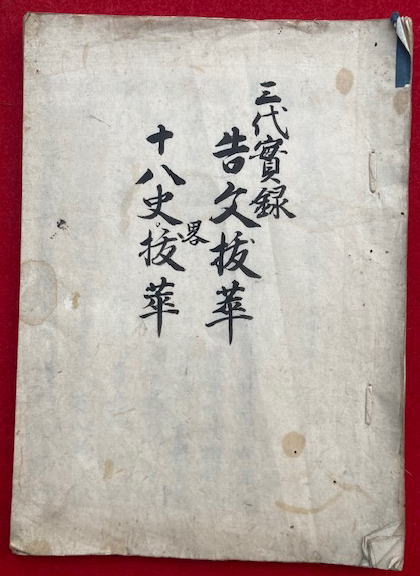 三代實録
告文拔萃
十八史畧拔萃